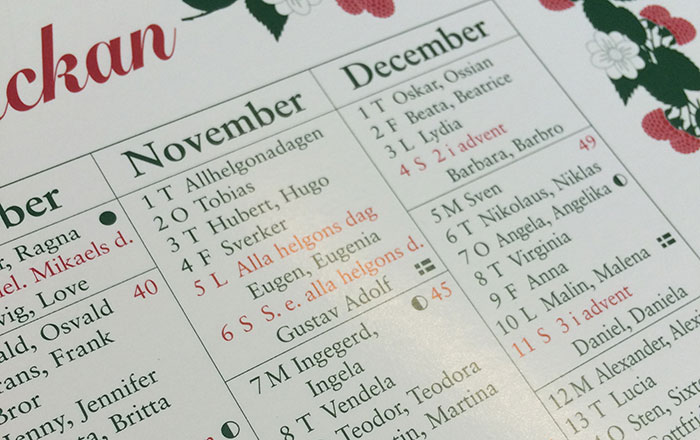 ckan
ber
r, Ragna
el. Mikaels d.
vig, Love
40
ald, Osvald
rans, Frank
Bror
Jenny, Jennifer
ta, Britta
November
1 T Allhelgonadagen
2 O Tobias
3 T Hubert, Hugo
4 F Sverker
5 L Alla helgons dag
Eugen, Eugenia
6 S S. e. alla helgons d.
Gustav Adolf
45
7 M Ingegerd,
Ingela
8 T Vendela
Teodor, Teodora
tin, Martina
December
1 T Oskar, Ossian
2 F Beata, Beatrice
3 L Lydia
4 S 2 i advent
Barbara, Barbro
49
5 M Sven
6 T Nikolaus, Niklas
7 O Angela, Angelika
8 T Virginia
9 F Anna
10 L Malin, Malena
11 S 3 i advent
Daniel, Daniela
12 M Alexander, Alexi
13 T Lucia
O Sten, Six
ottf